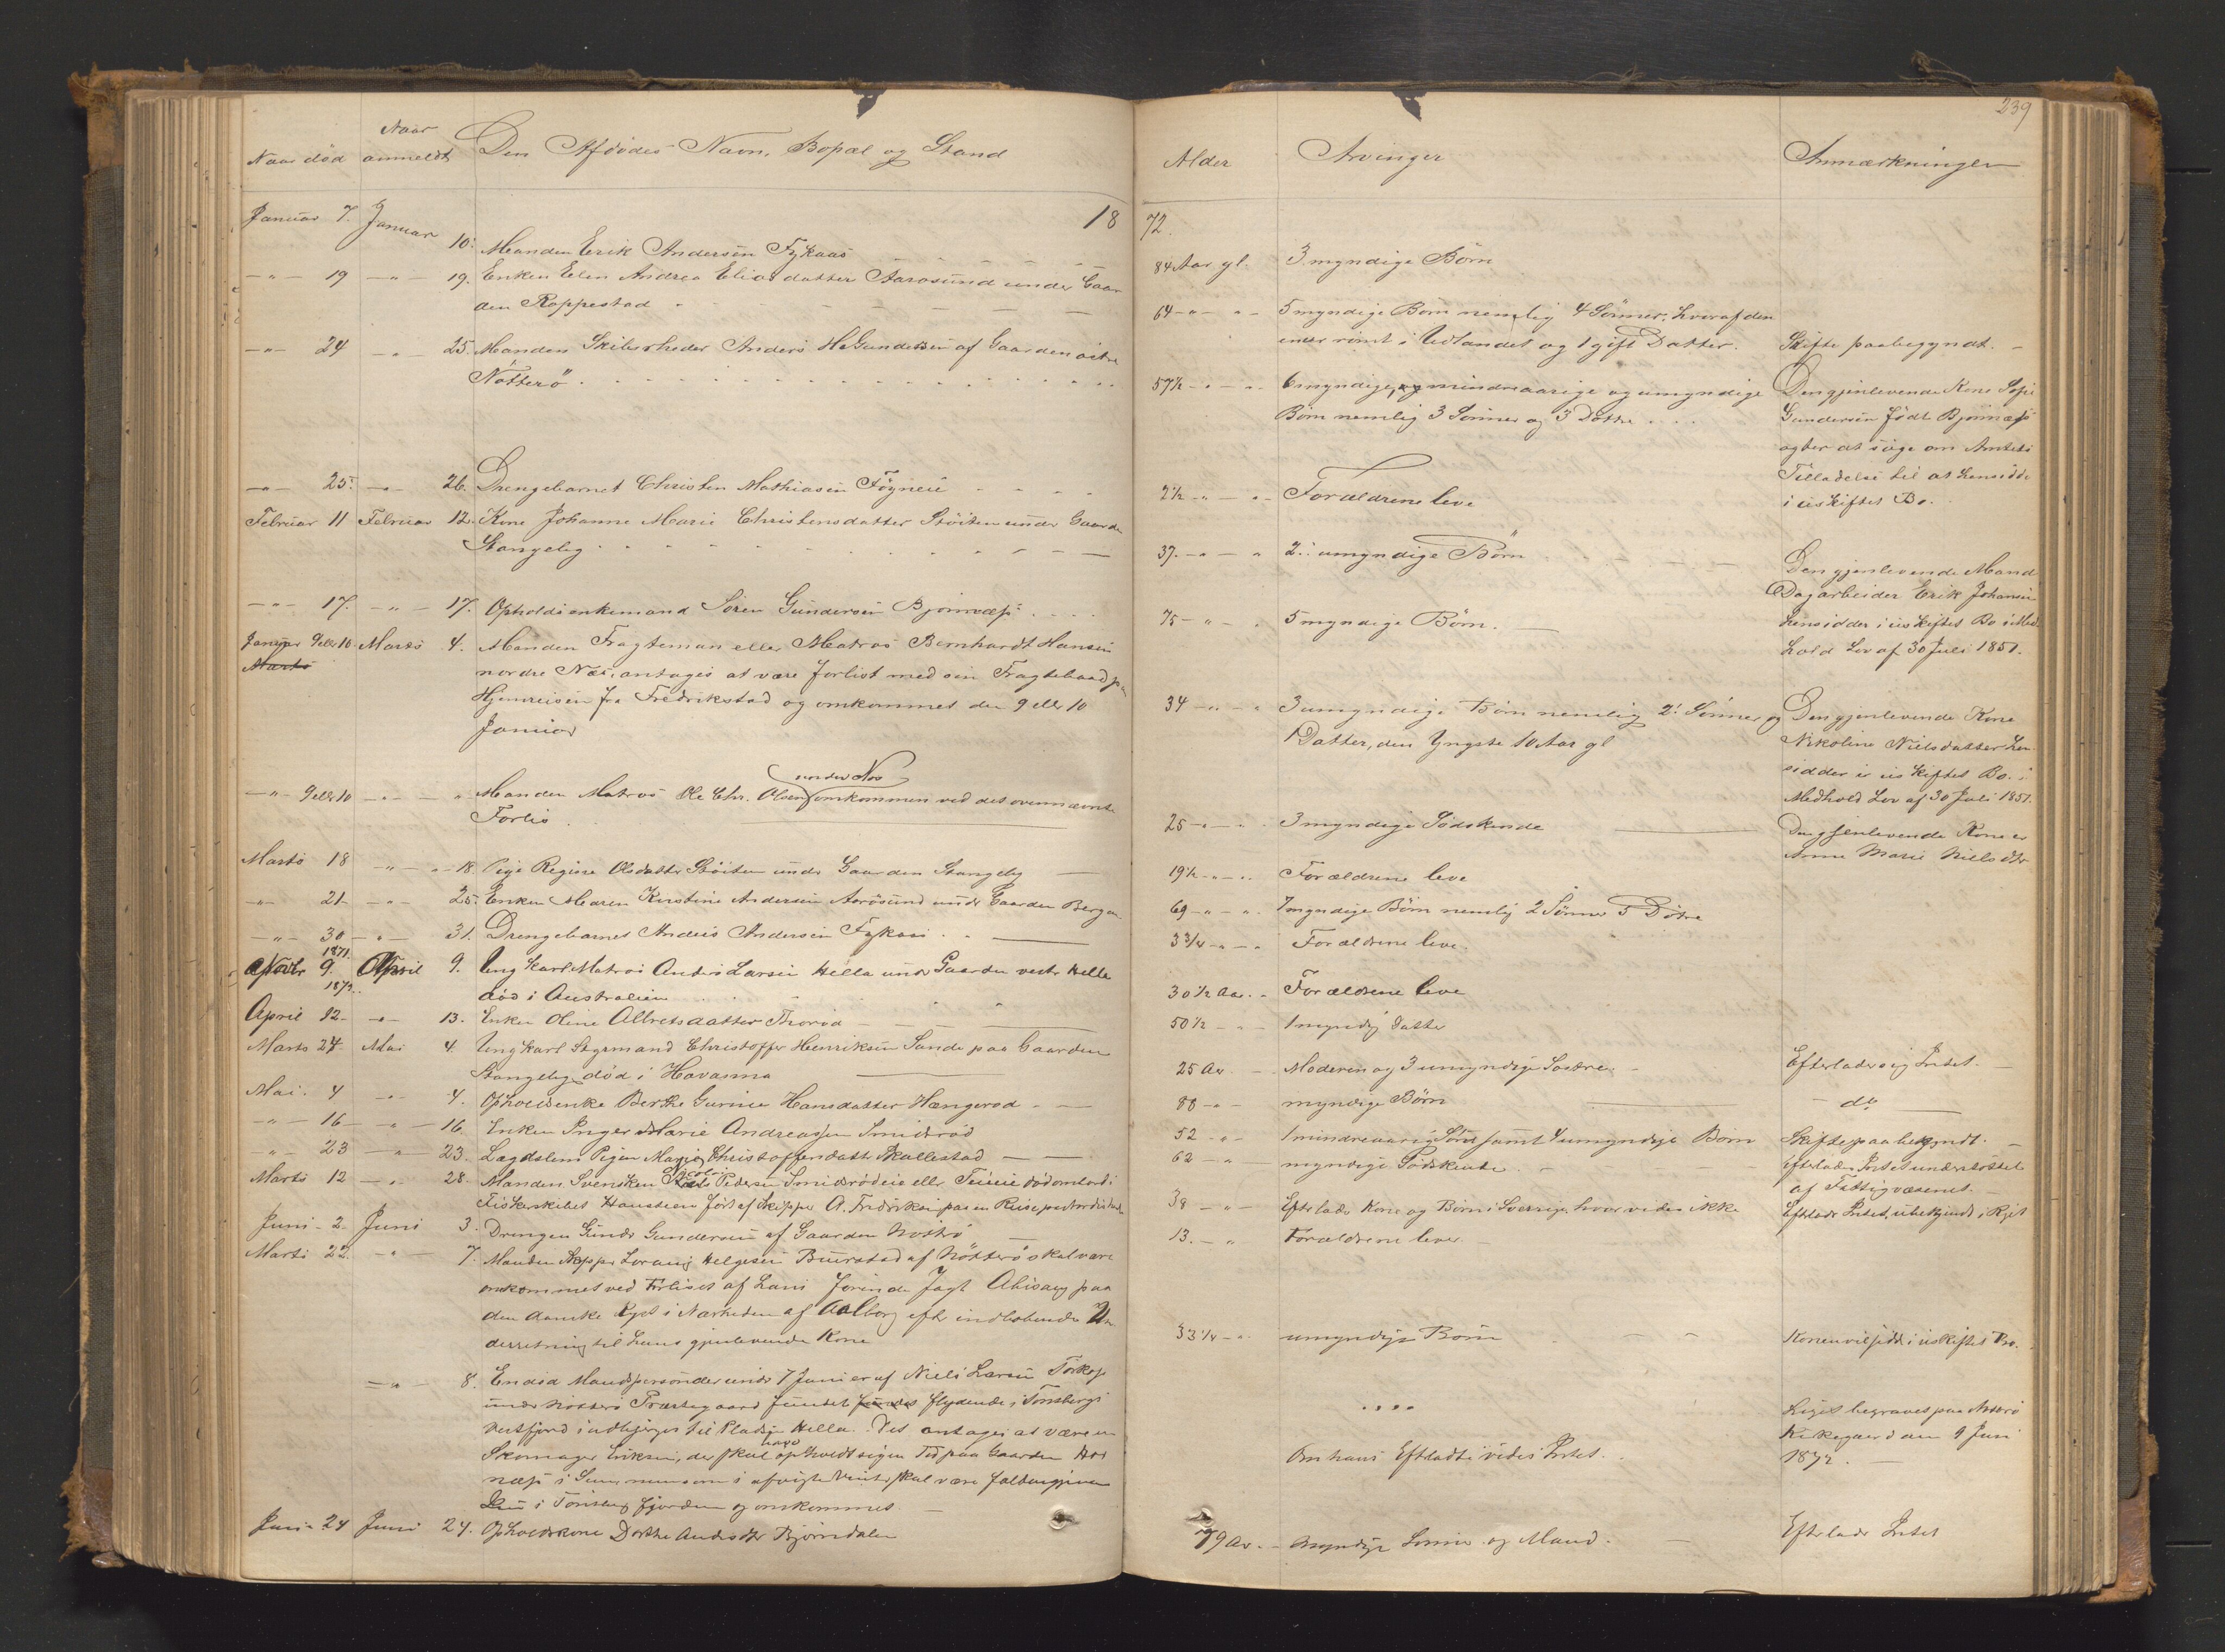 239
Naar død
Naar anmeldt
Den Afdødes Navn, Bopæl og Stand
Alder
Arvinger
Anmærkninger
1872.
Januar 7. Januar 10. Manden Erik Andersen Fykaas
84 Aar gl. 3 myndige Børn
-"- 19 -"- 19. Enken Elen Andrea Eliasdatter Aarøsund under Gaar
den Roppestad
64 -"- 5 myndige Børn nemlig 4 Sønner, hvoraf den
ene rømt i Udlandet og 1 gift Datter.
Skifte paabegyndt.
-"- 24 -"- 25. Manden Skibsrheder Anders H Gundersen af Gaarden østre
Nøtterø
57½ -"- 6 myndige, og mindreaarige og umyndige
Børn nemlig 3 Sønner og 3 Døttre
Den gjenlevende Kone Sofie
Gundersen født Bjønnæss
agter at søge om Amtets
Tilladelse til at hensidde
i uskiftet Bo.
-"- 25. -"- 26. Drengebarnet Christen Mathiasen Føyneie
2½ -"- Forældrene leve
Februar 11 Februar 12. Kone Johanne Marie Christensdatter Støiten under Gaarden
Stangeby
37. -"- 2 umyndige Børn
Den gjenlevende Mand
Dagarbeider Erik Johansen
hensidder i uskiftet Bo i Med-
hold Lov af 30 Juli 1851.
-"- 17. -"- 17. Opholdsenkemand Søren Gundersen Bjønnæss
75 -"- 5 myndige Børn.
Januar 9 eller 10. Marts 4. Manden Fragteman eller Matros Bernhardt Hansen
Marts
nordre Næs, antages at være forlist med sin Fragtebaad paa
Hjemreisen fra Fredrikstad og omkommet den 9 eller 10
Januar
34 -"- 3 umyndige Børn nemlig 2 Sønner og
1 Datter, den Yngste 10 Aar gl
Den gjenlevende Kone
Nikoline Nielsdatter hen-
sidder i uskiftet Bo i
Medhold Lov af 30 Juli 1851.
-"- 9 eller 10 -"- " Manden Matros Ole Chr. Olsen nordre Næs omkommen ved det ovennævnte
Forlis
25 -"- 3 myndige Sødskende
Den gjenlevende Kone er
Anne Marie Nielsdtr
Marts 18 -"- 18. Pige Regine Olsdatter Støiten under Gaarden Stangeby
19½ -"- Forældrene leve
-"- 21 -"- 25. Enken Maren Kirstine Andersen Aarøsund under Gaarden Bergan
69 -"- 7 myndige Børn nemlig 2 Sønner 5 Døtre
-"- 30 -"- 31. Drengebarnet Anders Andersen Fykaas
3¾ -"- Forældrene leve.
1871.
Novbr 9. April 9. Ungkarl Matros Anders Larsen Hella under Gaarden vestre Hella
død i Australien
30½ Aar. Forældrene leve
1872.
April 12 -"- 13. Enken Oline Albretsdatter Thorød
50½ 1 myndig Datter
Marts 24 Mai 4 Ungkarl Styrmand Christoffer Henriksen Sande paa Gaarden
Stangeby død i Havanna
25 Aar Moderen og 3 umyndige Søstre
Efterlader sig Intet.
Mai. 4 -"- 4. Opholdsenke Berthe Gurine Hansdatter Hængerød
88 -"- myndige Børn
do
-"- 16 -"- 16 Enken Inger Marie Andreassen Smidsrød
52 -"- 1 mindreaarig Søn samt 4 umyndige Børn
Skifte paabegyndt.
-"- 23 -"- 23. Lægdslem Pigen Maria Christoffersdatter Skallestad
62 -"- myndige Sødskende
Efterlader Intet understøttet
af Fattigvæsenet.
Marts 12 -"- 28. Manden Svensken Pedersen Smidsrødeie eller død ombord i
Fiskerskibet Hausteen ført af Skipper A. Fredriksen paa en Reise paa
38 -"- Efterlader Kone og Børn i Sverrige, hvor vides ikke
Efterlader Intet, ubekjendt i Riget
Juni 2 Juni 3. Drengen Gunder Gundersen af Gaarden Nøtterø
13. -"- Forældrene lever
Marts 22. -"- 7. Manden Skipper Lorang Helgesen Buerstad af Nøtterø skal være
omkommet ved Forliset af hans førende Jagt Abisag paa
den danske Kyst i Nærheden af Aalborg efter indløbende Un
derretning til hans gjenlevende Kone
33¼ -"- umyndige Børn
Konen vil sidde i uskiftet Bo.
-"- 8. En død Mandsperson der under 7 Juni er af Niels Larsen Torkop
under Nøtterø Præstegaard fundet fundet flydende i Tønsbergs
Vestfjord indbjerget til Pladsen Hella. Det antages at være en
Skomager Eriksen, der skal have opholdt sig en Tid paa Gaarden
næss i Sem, men som i afvigte Vinter skal være falden gjennem
Isen i Tønsbergfjorden og omkommet
Om hans Efterladte vides Intet.
Liget begraves paa Nøtterø
Kirkegaard den 9 Juni
1872.
Juni 24 Juni 24. Opholdskone Dorthe Andersdtr Bjørndalen
79 Aar. myndige Sønner og Mand.
Efterlader Intet